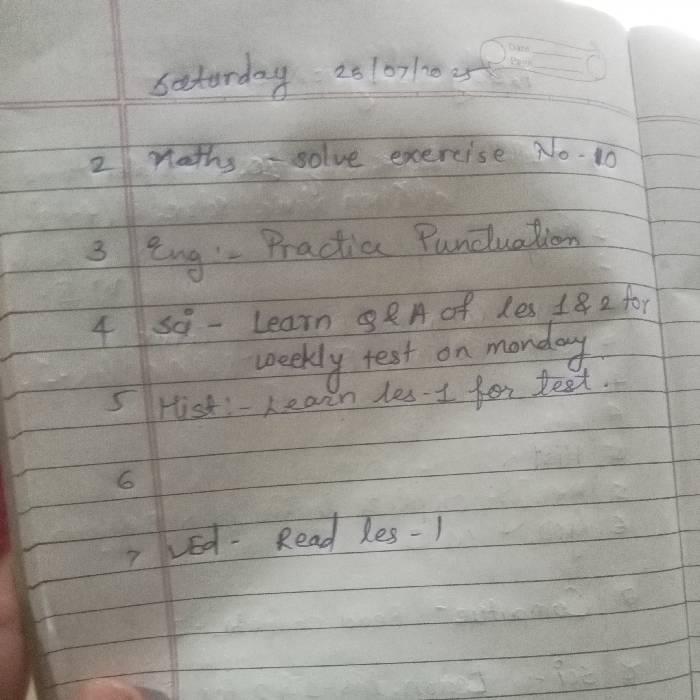 Date
Saturday 26/07/2025
2 Maths - solve exercise No-10
3 Eng :- Practice Punctuation
4 Sci - Learn Q&A of les 1 & 2 for
weekly test on monday.
5 Hist :- Learn les-1 for test.
6
7 VEd - Read les-1